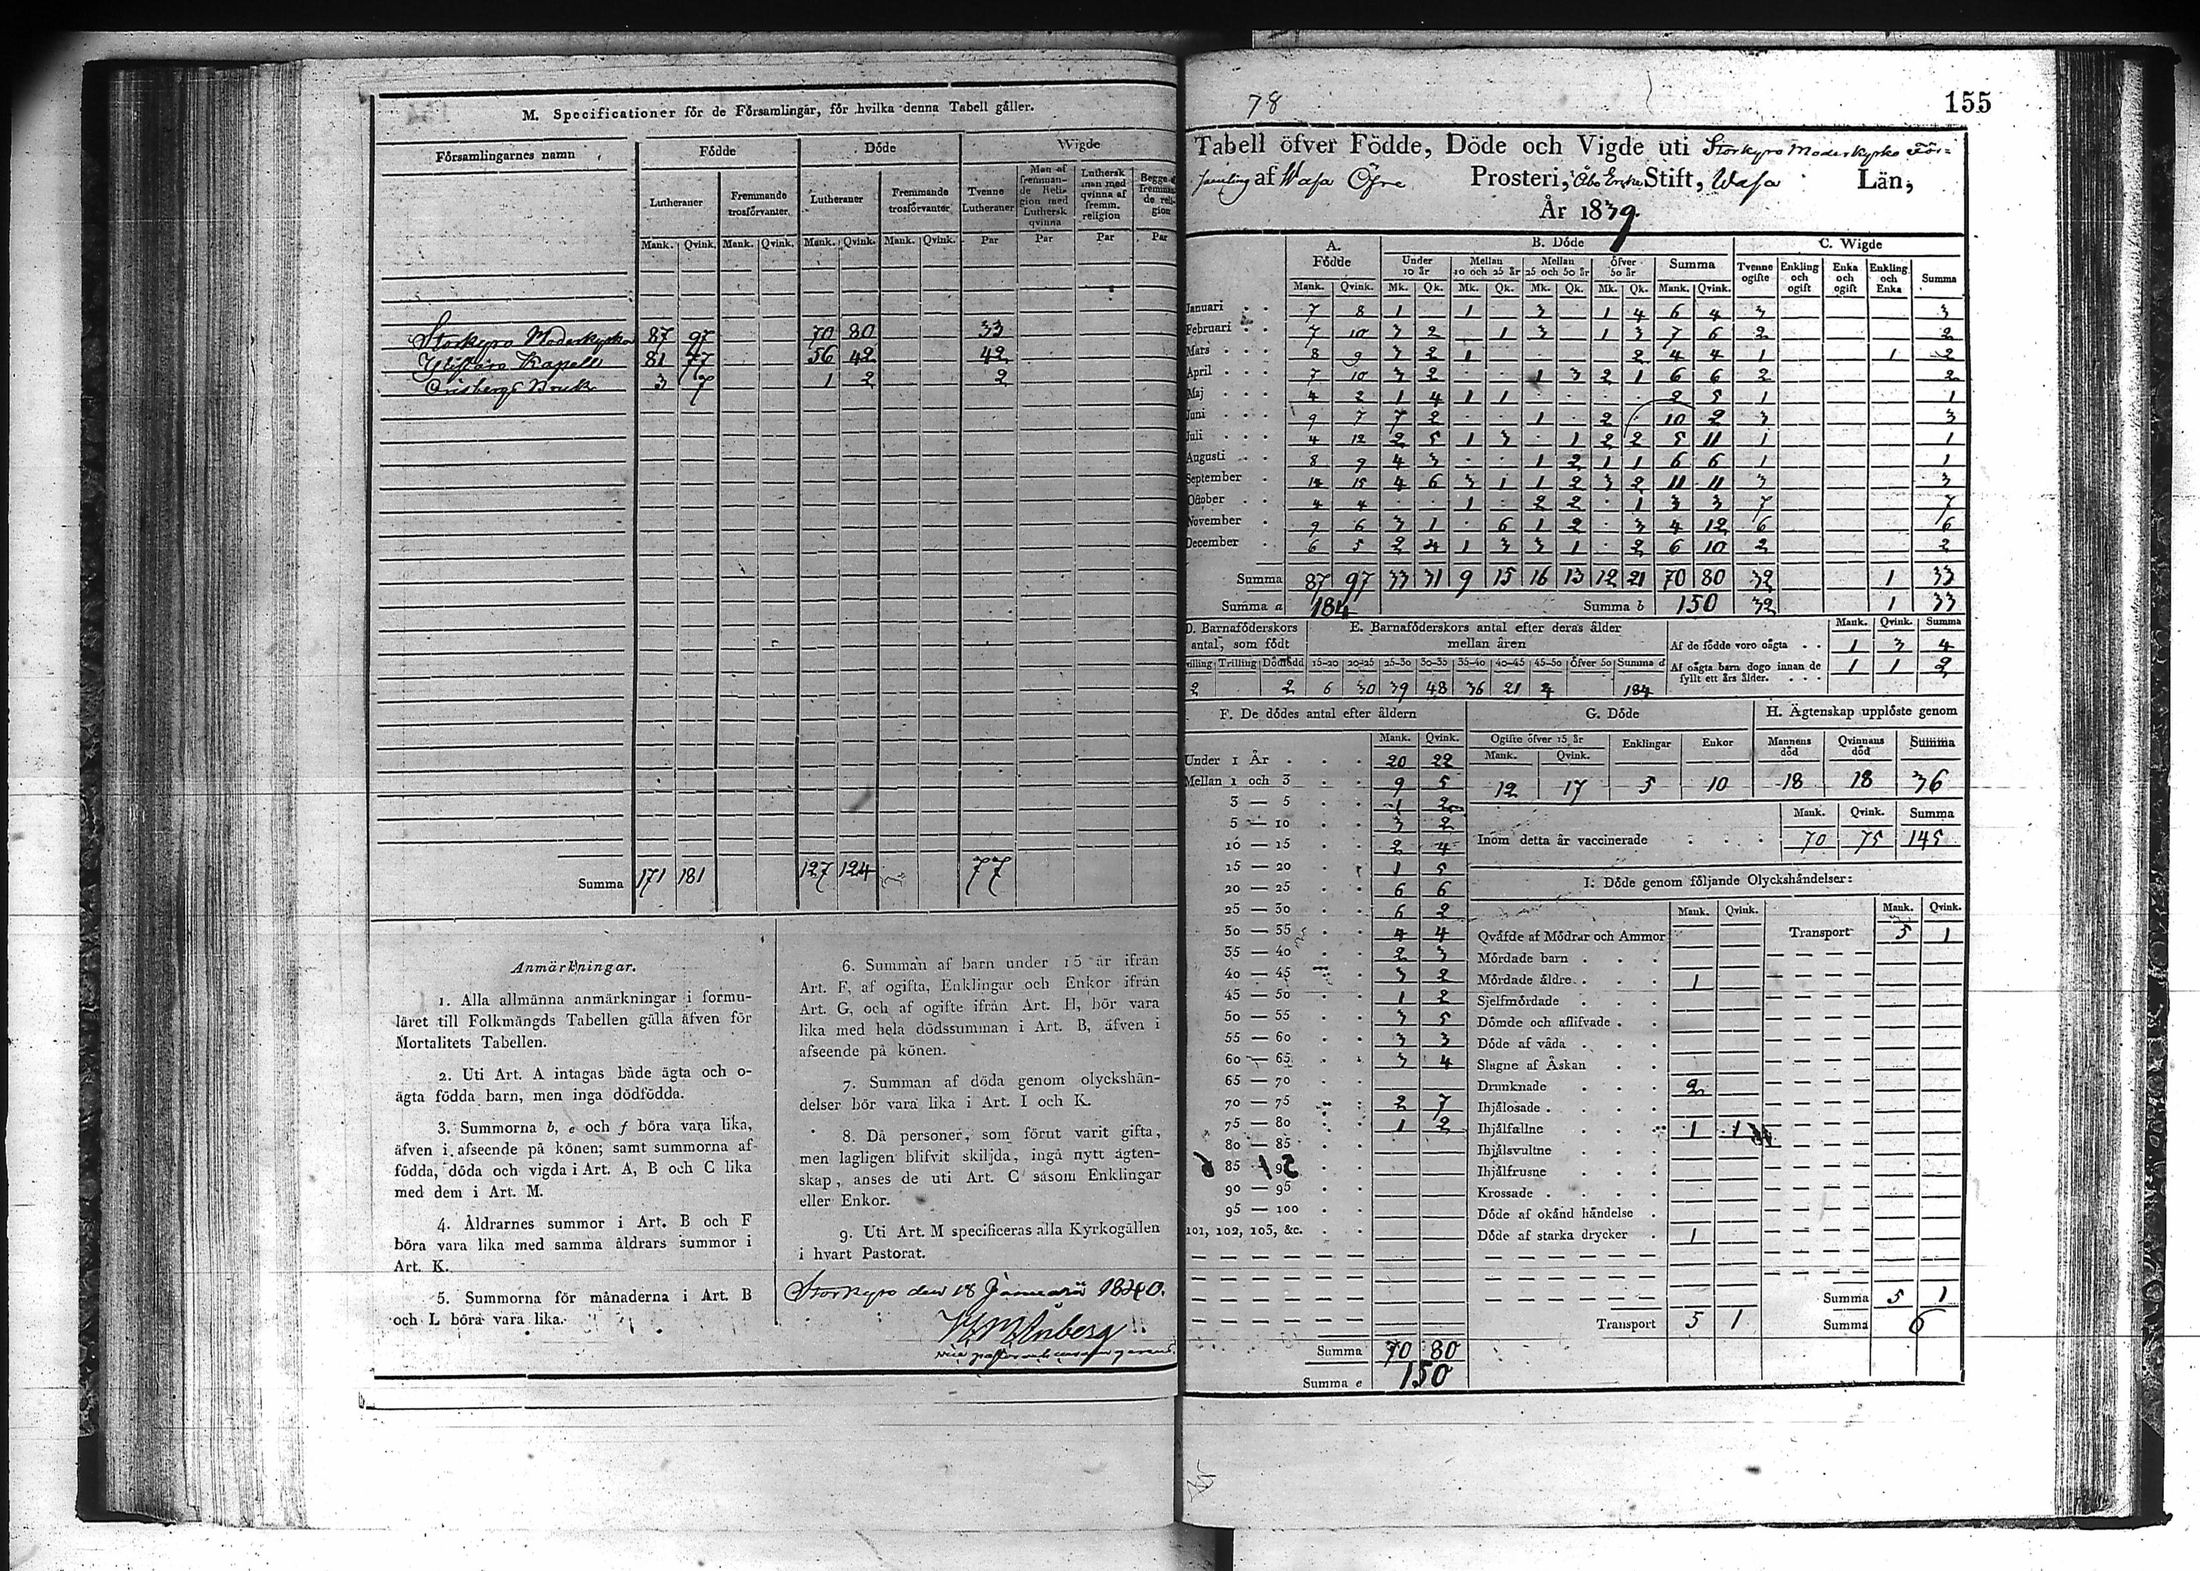 M. Specificationer för de Församlingar, för hvilka denna Tabell gäller.
Församlingarnes namn | Födde | Döde | Wigde
Lutheraner | Fremmande trosförvanter | Lutheraner | Fremmande trosförvanter | Tvenne Lutheraner | Man af fremmande Religion med Luthersk qvinna | Luthersk man med qvinna af fremm. religion | Begge af fremmande religion
Mank. Qvink. Mank. Qvink. Mank. Qvink. Mank. Qvink. Par Par Par Par
Storkyro Moderkyrka 87 97 70 80 33
Ylistaro Kapell 81 77 56 42 42
Orisbergs Bruk 3 7 1 2 2
Summa 171 181 127 124 77
Anmärkningar.
1. Alla allmänna anmärkningar i formu-
läret till Folkmängds Tabellen gälla äfven för
Mortalitets Tabellen.
2. Uti Art. A intagas både ägta och o-
ägta födda barn, men inga dödfödda.
3. Summorna b, e och f böra vara lika,
äfven i afseende på könen; samt summorna af
födda, döda och vigda i Art. A, B och C lika
med dem i Art. M.
4. Åldrarnes summor i Art. B och F
böra vara lika med samma åldrars summor i
Art. K.
5. Summorna för månaderna i Art. B
och L böra vara lika.
6. Summan af barn under 15 år ifrån
Art. F, af ogifta, Enklingar och Enkor ifrån
Art. G, och af ogifte ifrån Art. H, bör vara
lika med hela dödssumman i Art. B, äfven i
afseende på könen.
7. Summan af döda genom olyckshän-
delser bör vara lika i Art. I och K.
8. Då personer, som förut varit gifta,
men lagligen blifvit skiljda, ingå nytt ägten-
skap, anses de uti Art. C såsom Enklingar
eller Enkor.
9. Uti Art. M specificeras alla Kyrkogällen
i hvart Pastorat.
Storkyro den 18 Januarii 1840.
78
155
Tabell öfver Födde, Döde och Vigde uti Storkyro Moderkyrko För=
samling af Wasa Öfre Prosteri, Åbo Erke Stift, Wasa Län,
År 1839.
A. Födde | B. Döde | C. Wigde
Under 10 år | Mellan 10 och 25 år | Mellan 25 och 50 år | Öfver 50 år | Summa | Tvenne ogifte | Enkling och ogift | Enka och ogift | Enkling och Enka | Summa
Mank. Qvink. Mk. Qk. Mk. Qk. Mk. Qk. Mk. Qk. Mank. Qvink.
Januari . . 7 8 1 1 3 1 4 6 4 3 3
Februari . . 7 10 3 2 1 3 1 3 7 6 2 2
Mars . . . 8 9 3 2 1 2 4 4 1 1 2
April . . . 7 10 3 2 1 3 2 1 6 6 2 2
Maj . . . 4 2 1 4 1 1 2 5 1 1
Juni . . . 9 7 7 2 1 2 10 2 3 3
Juli . . . 4 12 2 5 1 3 1 2 2 5 11 1 1
Augusti . . 8 9 4 3 1 2 1 1 6 6 1 1
September . 14 15 4 6 3 1 1 2 3 2 11 11 3 3
October . . 4 4 1 2 2 1 3 3 7 7
November . 9 6 3 1 6 1 2 3 4 12 6 6
December . 6 5 2 4 1 3 3 1 2 6 10 2 2
Summa 87 97 33 31 9 15 16 13 12 21 70 80 32 1 33
Summa a 184 Summa b 150 32 1 33
D. Barnaföderskors antal, som födt
villing Trilling Dödfödd
2 2
E. Barnaföderskors antal efter deras ålder mellan åren
15-20 20-25 25-30 30-35 35-40 40-45 45-50 Öfver 50 Summa d
6 30 39 48 36 21 4 184
Mank. Qvink. Summa
Af de födde voro oägta . . 1 3 4
Af oägta barn dogo innan de fyllt ett års ålder. . . . 1 1 2
F. De dödes antal efter åldern
Mank. Qvink.
Under 1 År . . . 20 22
Mellan 1 och 3 . . 9 5
3 — 5 . . 1 2
5 — 10 . . 3 2
10 — 15 . . 2 4
15 — 20 . 1 5
20 — 25 . . 6 6
25 — 30 . . 6 2
30 — 35 . . 4 4
35 — 40 . . 2 3
40 — 45 . 3 2
45 — 50 . . 1 2
50 — 55 . . 3 5
55 — 60 . . 3 3
60 — 65 . . 3 4
65 — 70 .
70 — 75 . . 2 7
75 — 80 . . 1 2
80 — 85 . .
85 90
90 — 95 . .
95 — 100 . .
101, 102, 103, &c. . .
Summa 70 80
Summa e 150
G. Döde
Ogifte öfver 15 år | Enklingar | Enkor
Mank. Qvink.
12 17 5 10
H. Ägtenskap upplöste genom
Mannens död | Qvinnans död | Summa
18 18 36
Mank. Qvink. Summa
Inom detta år vaccinerade . . . . 70 75 145
I. Döde genom följande Olyckshändelser:
Mank. Qvink. Mank. Qvink.
Qväfde af Mödrar och Ammor
Transport 5 1
Mördade barn . . .
Mördade äldre . . . 1
Sjelfmördade . . .
Dömde och aflifvade . .
Döde af våda . . .
Slagne af Åskan . .
Drunknade . . . 2
Ihjälosade . . . .
Ihjälfallne . . . 1 1
Ihjälsvultne . . .
Ihjälfrusne . . .
Krossade . . . .
Döde af okänd händelse .
Döde af starka drycker . 1
Summa 5 1
Transport 5 1
Summa 6